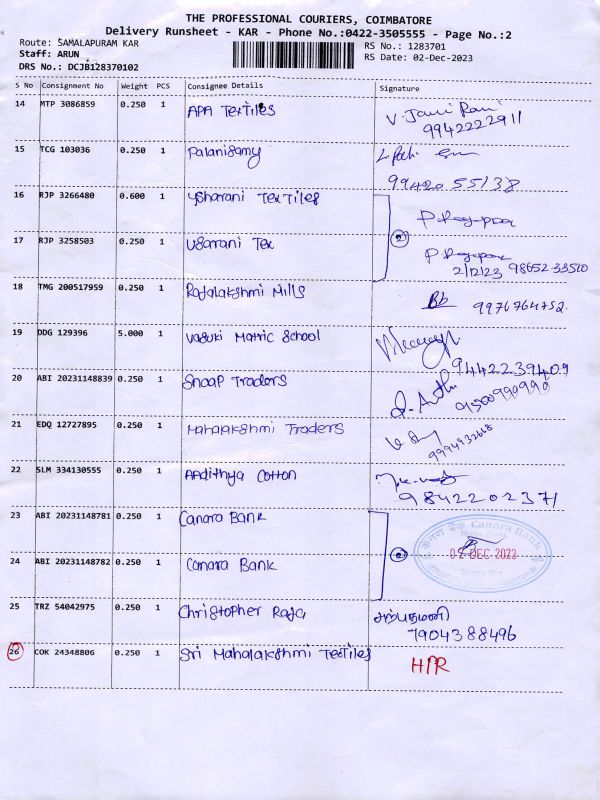 THE PROFESSIONAL COURIERS, COIMBATORE
Delivery Runsheet - KAR - Phone No.:0422-3505555 - Page No.:2
Route: SAMALAPURAM KAR
RS No.: 1283701
Staff: ARUN
RS Date: 02-Dec-2023
DRS No.: DCJB128370102
S No Consignment No Weight PCS Consignee Details Signature
14 MTP 3086859 0.250 1 APA TexTiles V. Jansi Rani
9942222911
15 TCG 103036 0.250 1 Palanisamy
99420 55138
16 RJP 3266480 0.600 1 Ysharani TexTiles
17 RJP 3258503 0.250 1 Usarani Tex
2/12/23 98652 33510
18 TMG 200517959 0.250 1 Rajalakshmi Mills Bb 9976764752.
19 DDG 129396 5.000 1 Vasuki Matric School
9442239409
20 ABI 20231148839 0.250 1 Snaap Traders
21 EDQ 12727895 0.250 1 Mahalakshmi Traders
9994932668
22 SLM 334130555 0.250 1 Aadithya Cotton
9842202371
23 ABI 20231148781 0.250 1 Canara Bank
केनरा बैंक Canara Bank
02 DEC 2023
24 ABI 20231148782 0.250 1 Canara Bank
25 TRZ 54042975 0.250 1 Christopher Raja அற்புதமணி
7904388496
26 COK 24348806 0.250 1 Sri Mahalakshmi TexTiles H/R